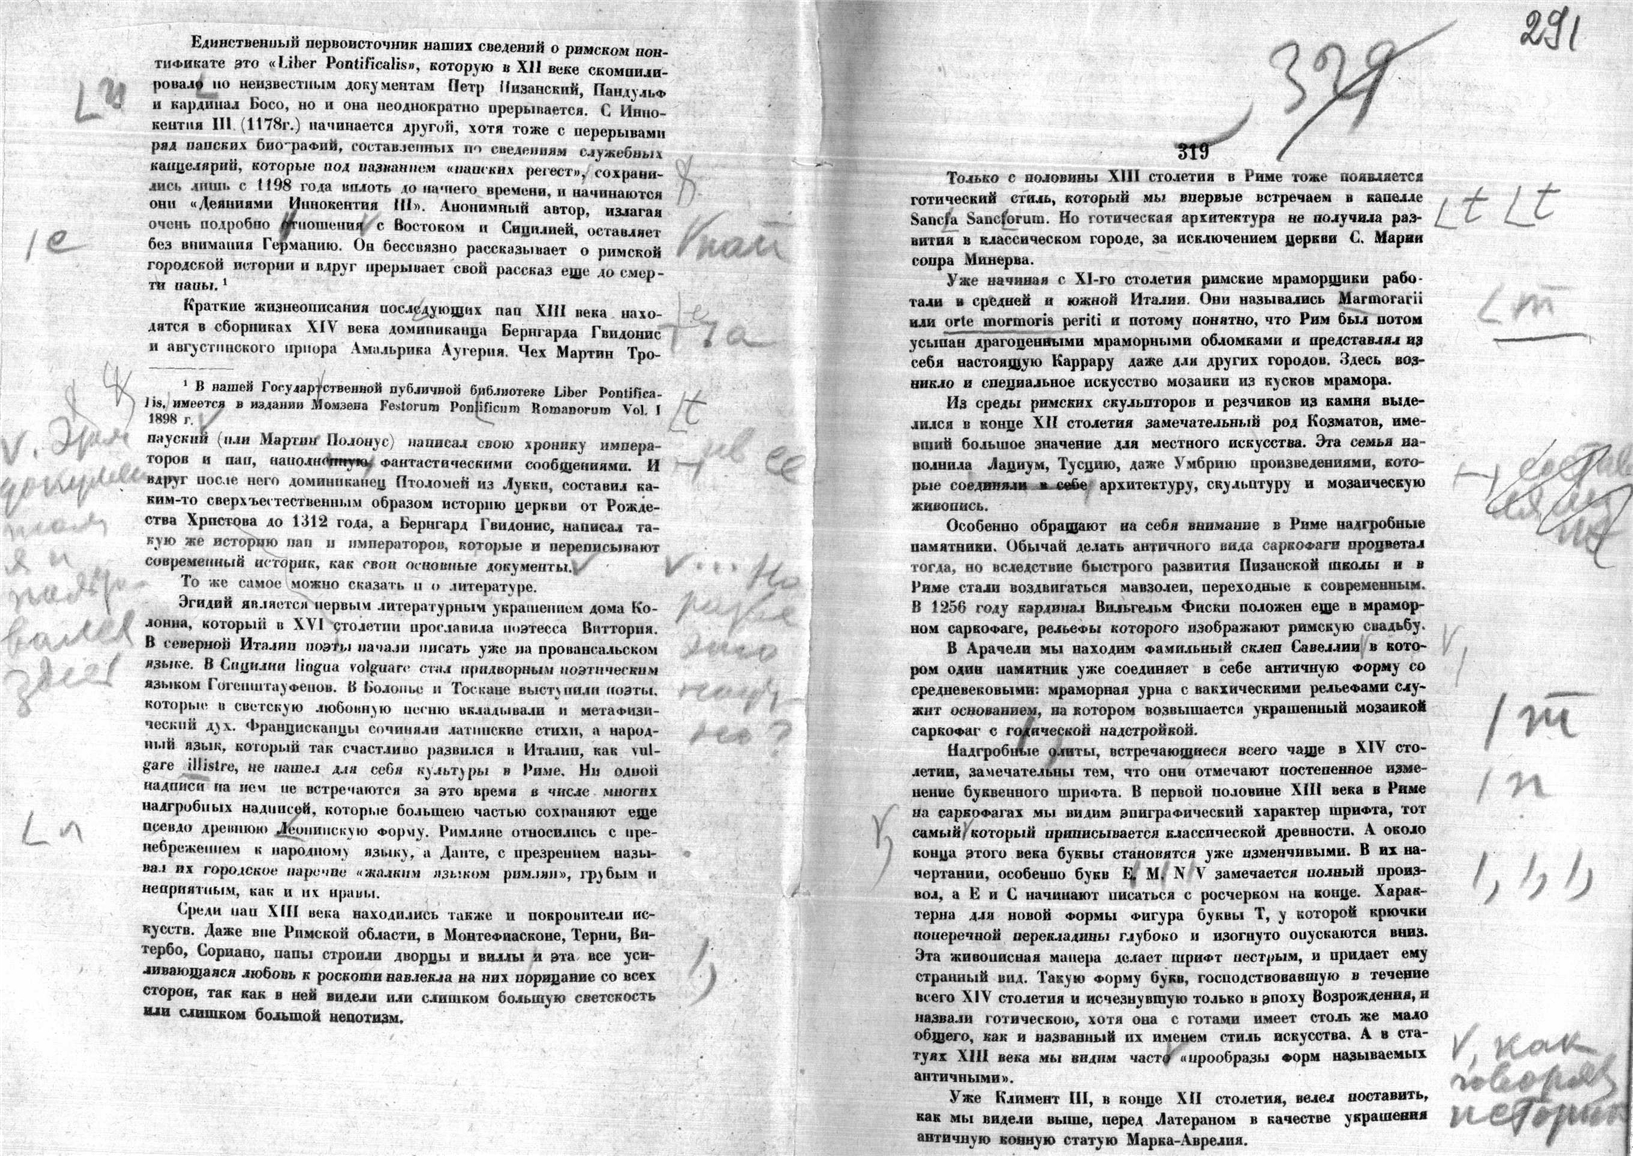 Единственный первоисточник наших сведений о римском пон-
тификате это «Liber Pontificalis», которую в XII веке скомпили-
ровало по неизвестным документам Петр Пизанский, Пандульф
и кардинал Босо, но и она неоднократно прерывается. С Инно-
кентия III (1178г.) начинается другой, хотя тоже с перерывами
ряд папских биографий, составленных по сведениям служебных
канцелярий, которые под названием «папских регест», сохрани-
лись лишь с 1198 года вплоть до нашего времени, и начинаются
они «Деяниями Иннокентия III». Анонимный автор, излагая
очень подробно отношения с Востоком и Сицилией, оставляет
без внимания Германию. Он бессвязно рассказывает о римской
городской истории и вдруг прерывает свой рассказ еще до смер-
ти папы. 1
Краткие жизнеописания последующих пап XIII века нахо-
дятся в сборниках XIV века доминиканца Бернгарда Гвидонис
и августинского приора Амальрика Аугерия. Чех Мартин Тро-
1 В нашей Государтственной публичной библиотеке Liber Pontifica-
lis, имеется в издании Момзена Festorum Pontificum Romanorum Vol. I
1898 г.
пауский (или Мартин Полонус) написал свою хронику импера-
торов и пап, наполненную фантастическими сообщениями. И
вдруг после него доминиканец Птоломей из Лукки, составил ка-
ким-то сверхъестественным образом историю церкви от Рожде-
ства Христова до 1312 года, а Бернгард Гвидонис, написал та-
кую же историю пап и императоров, которые и переписывают
современный историк, как свои основные документы.
То же самое можно сказать и о литературе.
Эгидий является первым литературным украшением дома Ко-
лонна, который в XVI столетии прославила поэтесса Виттория.
В северной Италии поэты начали писать уже на провансальском
языке. В Сицилии lingua volguare стал придворным поэтическим
языком Гогенштауфенов. В Болонье и Тоскане выступили поэты,
которые в светскую любовную песню вкладывали и метафизи-
ческий дух. Францисканцы сочиняли латинские стихи, а народ-
ный язык, который так счастливо развился в Италии, как vul-
gare illistre, не нашел для себя культуры в Риме. Ни одной
надписи на нем не встречаются за это время в числе многих
надгробных надписей, которые большею частью сохраняют еще
псевдо древнюю Леонинскую форму. Римляне относились с пре-
небрежением к народному языку, а Данте, с презрением назы-
вал их городское наречие «жалким языком римлян», грубым и
неприятным, как и их нравы.
Среди пап XIII века находились также и покровители ис-
кусств. Даже вне Римской области, в Монтефиасконе, Терни, Ви-
тербо, Сориано, папы строили дворцы и виллы и эта все уси-
ливающаяся любовь к роскоши навлекла на них порицание со всех
сторон, так как в ней видели или слишком большую светскость
или слишком большой непотизм.
и
е
пап
е
за
t
л
V. Эти
документы
здесь
V... Но
разве
это
науч-
но?
291
329
319
Только с половины XIII столетия в Риме тоже появляется
готический стиль, который мы впервые встречаем в капелле
Sancfa Sancforum. Но готическая архитектура не получила раз-
вития в классическом городе, за исключением церкви С. Марии
сопра Минерва.
Уже начиная с XI-го столетия римские мраморщики рабо-
тали в средней и южной Италии. Они назывались Marmorarii
или orte mormoris periti и потому понятно, что Рим был потом
усыпан драгоценными мраморными обломками и представлял из
себя настоящую Каррару даже для других городов. Здесь воз-
никло и специальное искусство мозаики из кусков мрамора.
Из среды римских скульпторов и резчиков из камня выде-
лился в конце XII столетия замечательный род Козматов, име-
вший большое значение для местного искусства. Эта семья на-
полнила Лациум, Тусцию, даже Умбрию произведениями, кото-
рые соединяли в себе архитектуру, скульптуру и мозаическую
живопись.
Особенно обращают на себя внимание в Риме надгробные
памятники. Обычай делать античного вида саркофаги процветал
тогда, но вследствие быстрого развития Пизанской школы и в
Риме стали воздвигаться мавзолеи, переходные к современным.
В 1256 году кардинал Вильгельм Фиски положен еще в мрамор-
ном саркофаге, рельефы которого изображают римскую свадьбу.
В Арачели мы находим фамильный склеп Савеллии в кото-
ром один памятник уже соединяет в себе античную форму со
средневековыми: мраморная урна с вакхическими рельефами слу-
жит основанием, на котором возвышается украшенный мозаикой
саркофаг с годической надстройкой.
Надгробные олиты, встречающиеся всего чаще в XIV сто-
летии, замечательны тем, что они отмечают постепенное изме-
нение буквенного шрифта. В первой половине XIII века в Риме
на саркофагах мы видим эпиграфический характер шрифта, тот
самый который приписывается классической древности. А около
конца этого века буквы становятся уже изменчивыми. В их на-
чертании, особенно букв E. M. N V замечается полный произ-
вол, а Е и С начинают писаться с росчерком на конце. Харак-
терна для новой формы фигура буквы Т, у которой крючки
поперечной перекладины глубоко и изогнуто опускаются вниз.
Эта живописная манера делает шрифт пестрым, и придает ему
странный вид. Такую форму букв, господствовавшую в течение
всего XIV столетия и исчезнувшую только в эпоху Возрождения, и
назвали готическою, хотя она с готами имеет столь же мало
общего, как и названный их именем стиль искусства. А в ста-
туях XIII века мы видим часто «прообразы форм называемых
античными».
Уже Климент III, в конце XII столетия, велел поставить,
как мы видели выше, перед Латераном в качестве украшения
античную конную статую Марка-Аврелия.
t t
т
т
п
V, как
говорят
историки